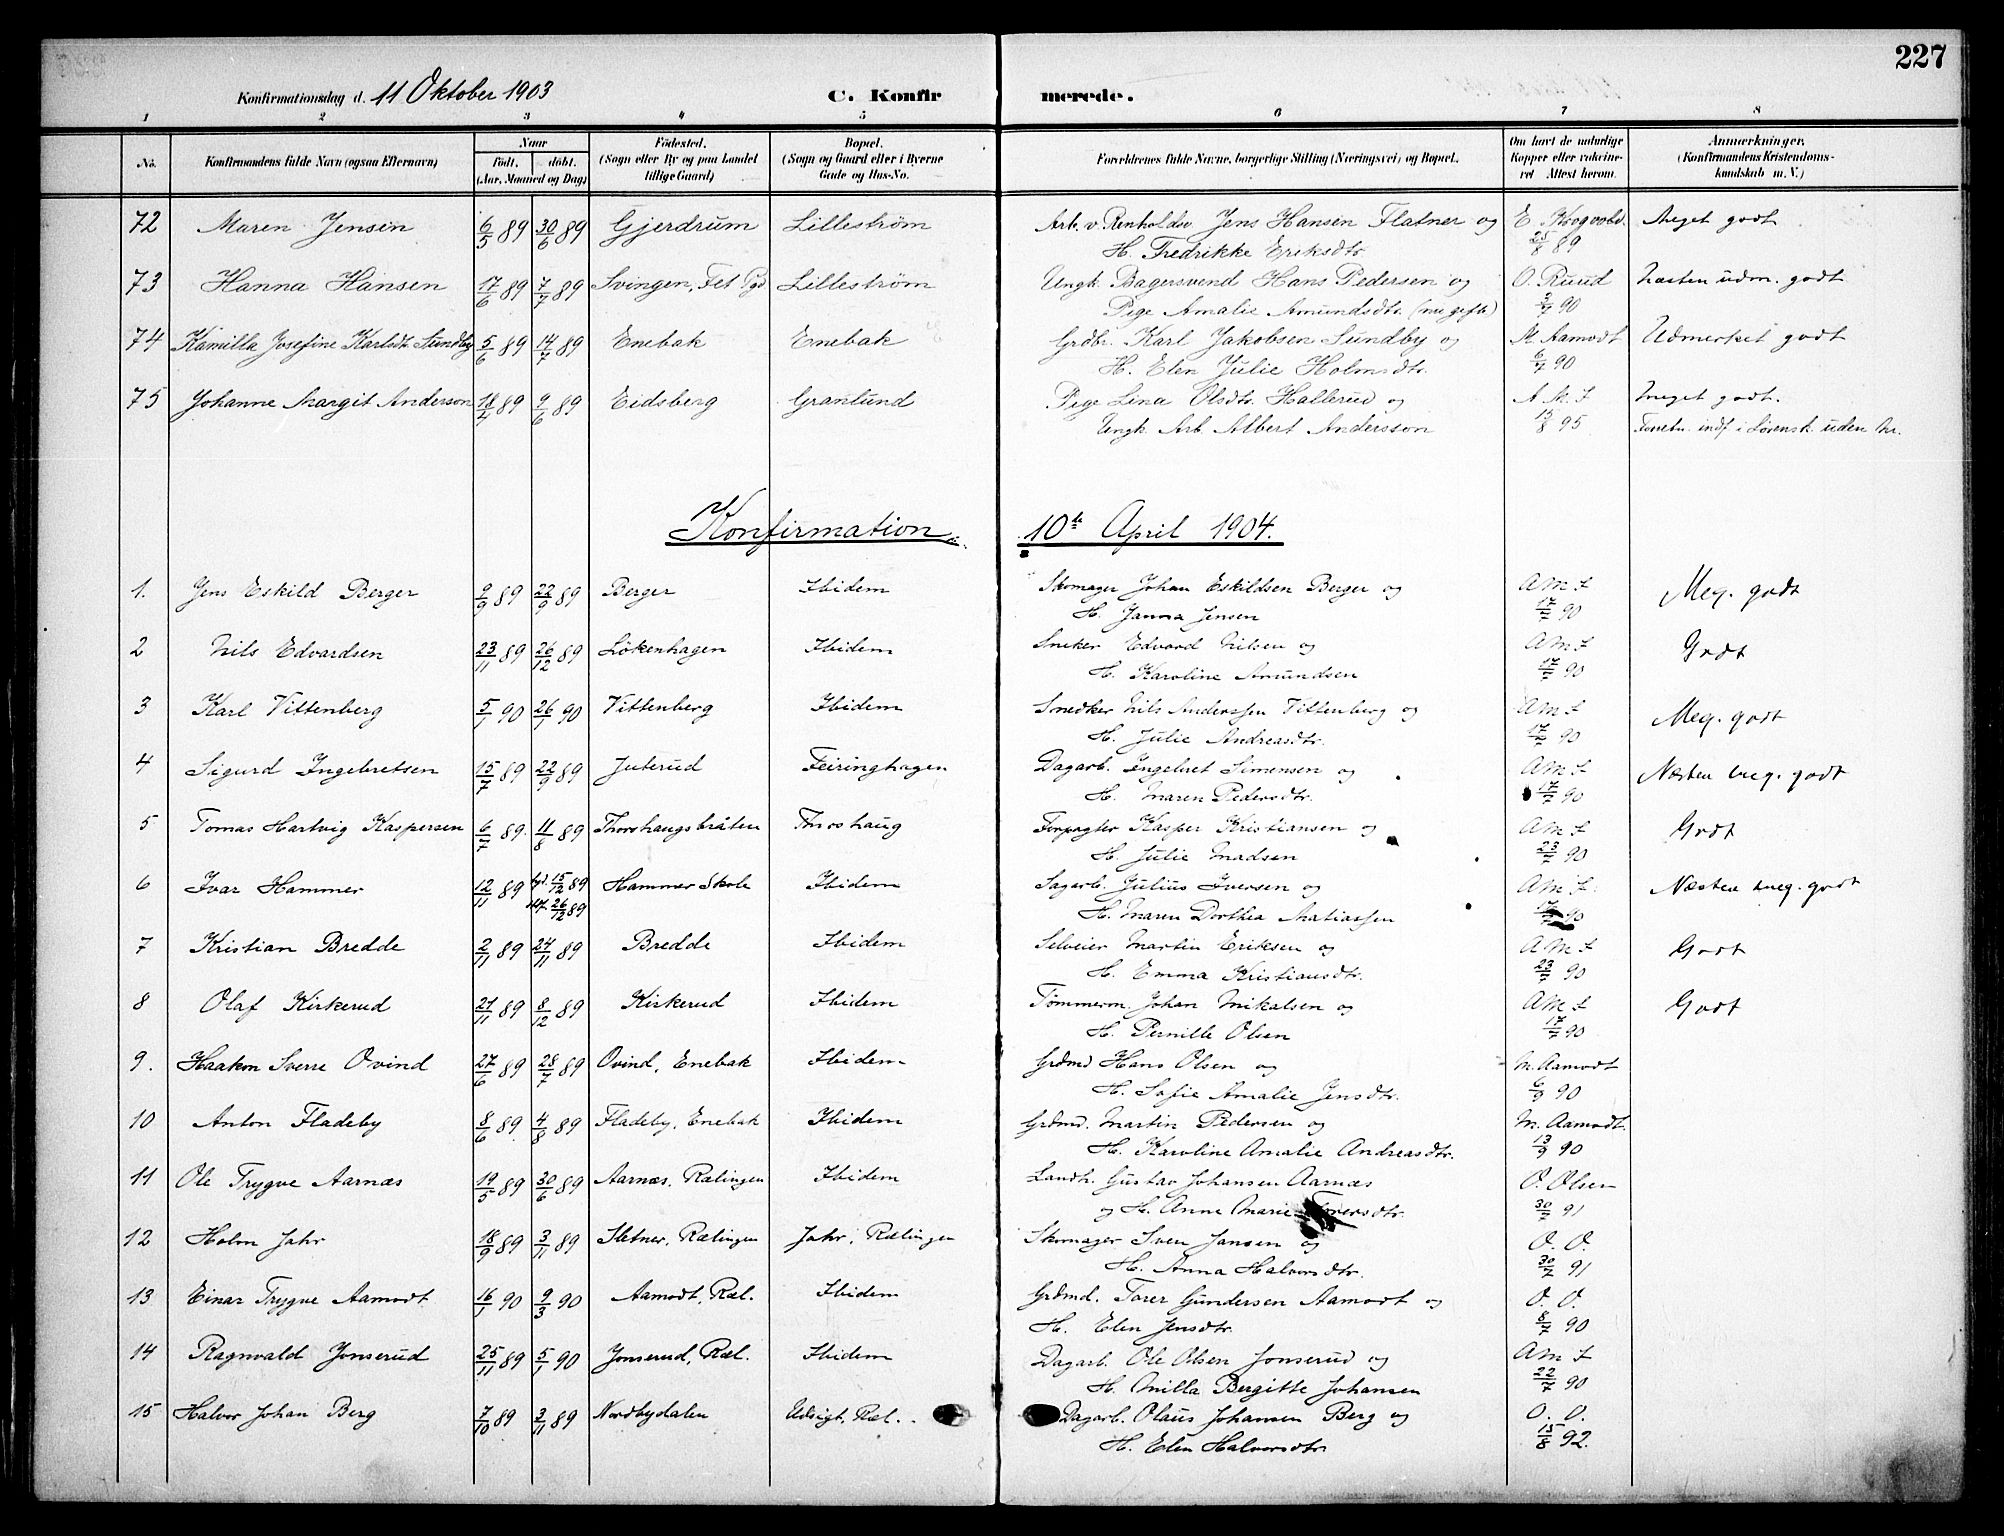 227
Konfirmationsdag d. 11 Oktober 1903 C. Konfirmerede.
1 2 3 4 5 6 7 8
No. Konfirmandens fulde Navn (ogsaa Efternavn) Naar født, døbt. (Aar, Maaned og Dag) Fødested. (Sogn eller By og paa Landet tillige Gaard) Bopæl. (Sogn og Gaard eller i Byerne Gade og Hus-No. Forældrenes fulde Navne, borgerlige Stilling (Næringsvei) og Bopæl. Om havt de naturlige Kopper eller vakcineret Attest herom. Anmærkninger. (Konfirmandens Kristendomskundskab m. V.)
72 Maren Jensen 6/5 89 30/6 89 Gjerdrum Lillestrøm Arb. v. Renholdsv Jens Hansen Flatner og E. Skogvold. Meget godt
H. Fredrikke Eriksdtr 25/8 89
73 Hanna Hansen 17/6 89 7/7 89 Svingen, Fet Pgd Lillestrøm Ungk. Bagersvend Hans Pedersen og O. Ruud Næsten udm. godt
Pige Amalie Amundsdtr. (nu gifte) 3/7 90
74 Kamilla Josefine Karlsdt. Sundby 5/6 89 14/7 89 Enebak Enebak Grdbr. Karl Jakobsen Sundby og M. Aamodt Udmerket godt
H. Elen Julie Holmsdtr. 6/9 90
75 Johanne Margit Anderson 18/4 89 9/6 89 Eidsberg Granlund Pige Lina Olsdtr. Hallerud og A. M. J meget godt.
Ungk. Arb. Albert Andersson 15/8 95 Forretn. indf i Lørensk. uden Nr.
Konfirmation 10de April 1904.
1. Jens Eskild Berger 9/9 89 22/9 89 Berger Ibidem Skomager Johan Eskildsen Berger og AMJ Meg. godt
H. Janna Jensen 17/7 90
2 Nils Edvardsen 23/11 89 26/12 89 Lökenhagen Ibidem Sneker Edvard Nilsen og AMJ Godt
H. Karoline Amundsen 17/7 90
3 Karl Vittenberg 5/1 90 26/1 90 Vittenberg Ibidem Snedker Nils Anderssen Vittenberg og AMJ Meg. godt
H. Julie Andreasdtr. 17/7 90
4 Sigurd Ingebretsen 15/7 89 22/9 89 Juterud Feiringhagen Dagarb. Ingebret Simensen og AMJ Næsten meg. godt
H. Maren Pedersdtr. 17/7 90
5 Tomas Hartvig Kaspersen 6/7 89. 11/8 89 Thorshaugsbråten Thorshaug Forpagter Kasper Kristiansen og AMJ Godt
H. Julie Madsen 23/7 90
6 Ivar Hammer 12/11 89 15/12 89 Hammer Skole Ibidem Sagarb. Julius Iversen og AMJ. Næsten meg. godt
26/12 89 H. Maren Dorthea Matiassen 17/7 90
7 Kristian Bredde 2/11 89 24/11 89 Bredde Ibidem Selveier Martin Eriksen og AMJ Godt
H. Emma Kristiansdtr. 23/7 90
8 Olaf Kirkerud 21/11 89 8/12 89 Kirkerud Ibidem Tømmerm. Johan Mikalsen og AMJ Godt
H. Pernille Olsen 17/7 90
9. Haakon Sverre Ovind 27/6 89 28/7 89 Ovind, Enebak Ibidem Grdmd Hans Olsen og M. Aamodt
H. Sofie Amalie Jensdtr. 6/9 90
10 Anton Fladeby 8/6 89. 4/8 89 Fladeby, Enebak Ibidem Grdmd. Martin Pedersen og M. Aamodt.
H. Karoline Amalie Andreasdtr. 13/9 90
11 Ole Trygve Aarnæs 19/5 89 30/6 89 Aarnæs, Rælingen Ibidem Landh. Gustav Johansen Aarnæs O. Olsen
og H. Anne Marie 30/7 91
12 Holm Jahr 18/9 89 3/11 89 Sletner, Rælingen Jahr, Rælingen Skomager Sven Jansen og O. O.
H. Anna Halvorsdtr. 30/7 91
13 Einar Trygve Aamodt 16/1 90 9/3 90 Aamodt, Ræl. Ibidem Grdmd. Torer Gundersen Aamodt og O. O.
H. Elen Jensdtr. 8/7 90
14 Ragnvald Jonserud 25/11 89 5/1 90 Jonserud, Ræl. Ibidem Dagarb. Ole Olsen Jonserud og AMJ
H. Milla Bergitte Johansen 22/7 90
15 Halvor Johan Berg 7/10 89 3/11 89 Nordbydalen Udsigt, Ræl. Dagarb. Olaus Johansen Berg og O. O.
H. Elen Halvorsdtr. 15/8 92.